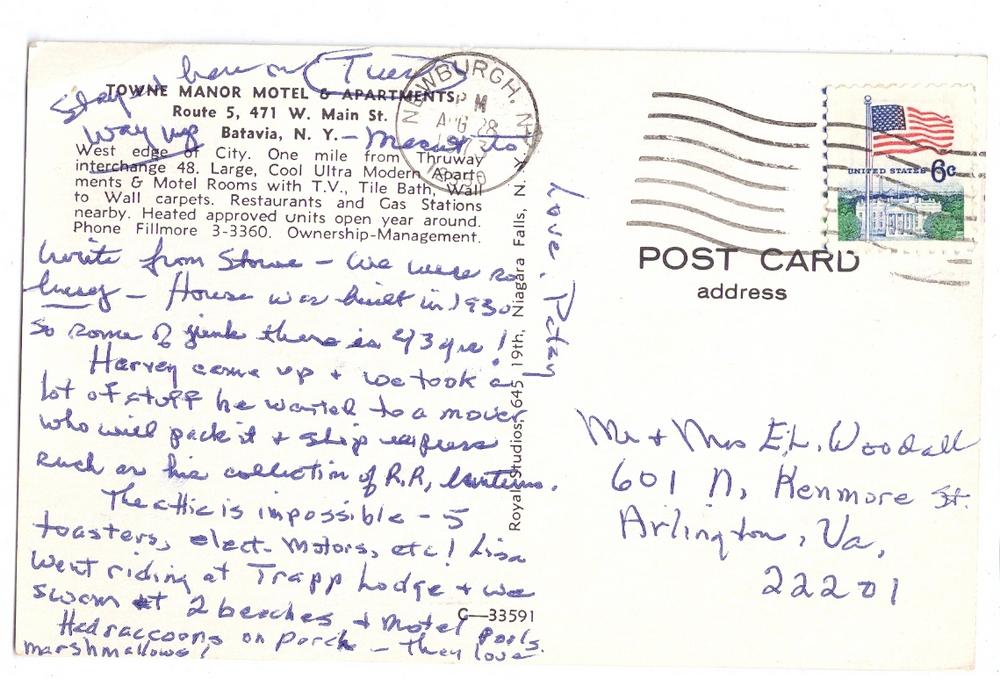 Stayed here on Tues.
TOWNE MANOR MOTEL & APARTMENTS
Route 5, 471 W. Main St.
way up
Batavia, N. Y.
- Meant to
West edge of City. One mile from Thruway
interchange 48. Large, Cool Ultra Modern Apart-
ments & Motel Rooms with T.V., Tile Bath, Wall
to Wall carpets. Restaurants and Gas Stations
nearby. Heated approved units open year around.
Phone Fillmore 3-3360. Ownership-Management.
write from Stowe - We were so
busy - House was built in 1930
So some of junk there is 43 yrs!
Harvey came up + we took a
lot of stuff he wanted to a mover
who will pack it + ship express
such as his collection of R.R. lanterns.
The attic is impossible - 5
toasters, elect. motors, etc! Lisa
went riding at Trapp Lodge + we
swam at 2 beaches + Motel pools.
Had raccoons on porch - they love
marshmallows!
Love, Patsy
C-33591
Royal Studios, 645 19th, Niagara Falls, N. Y.
NEWBURGH, N.Y.
PM
AUG 28
UNITED STATES 6c
POST CARD
address
Mr + Mrs E.L. Woodall
601 N. Kenmore St.
Arlington, Va.
22201